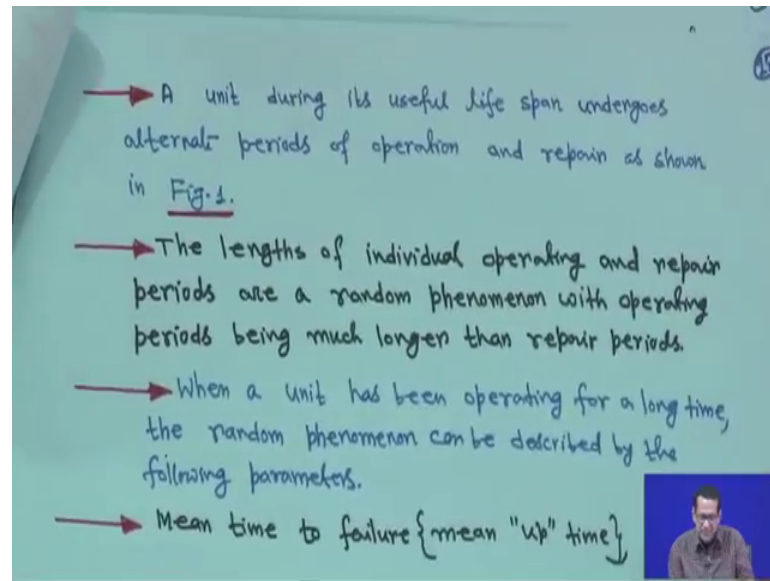 A unit during its useful life span undergoes
alternate periods of operation and repair as shown
in Fig. 1.
The lengths of individual operating and repair
periods are a random phenomenon with operating
periods being much longer than repair periods.
When a unit has been operating for a long time,
the random phenomenon can be described by the
following parameters.
Mean time to failure {mean "up" time},